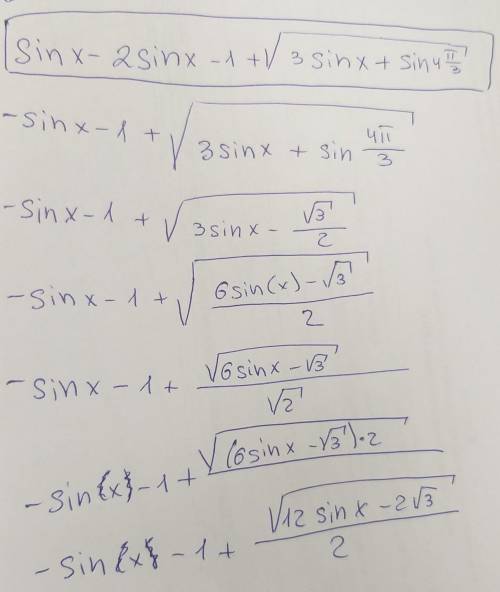 sin x - 2sinx - 1 + √(3sinx + sin 4 π/3)
-sinx - 1 + √(3sinx + sin 4π/3)
-sinx - 1 + √(3sinx - √3/2)
-sinx - 1 + √((6sin(x) - √3)/2)
-sinx - 1 + √(6sinx - √3)/√2
-sin(x) - 1 + √((6sinx - √3)·2)
-sin(x) - 1 + √(12sinx - 2√3)/2